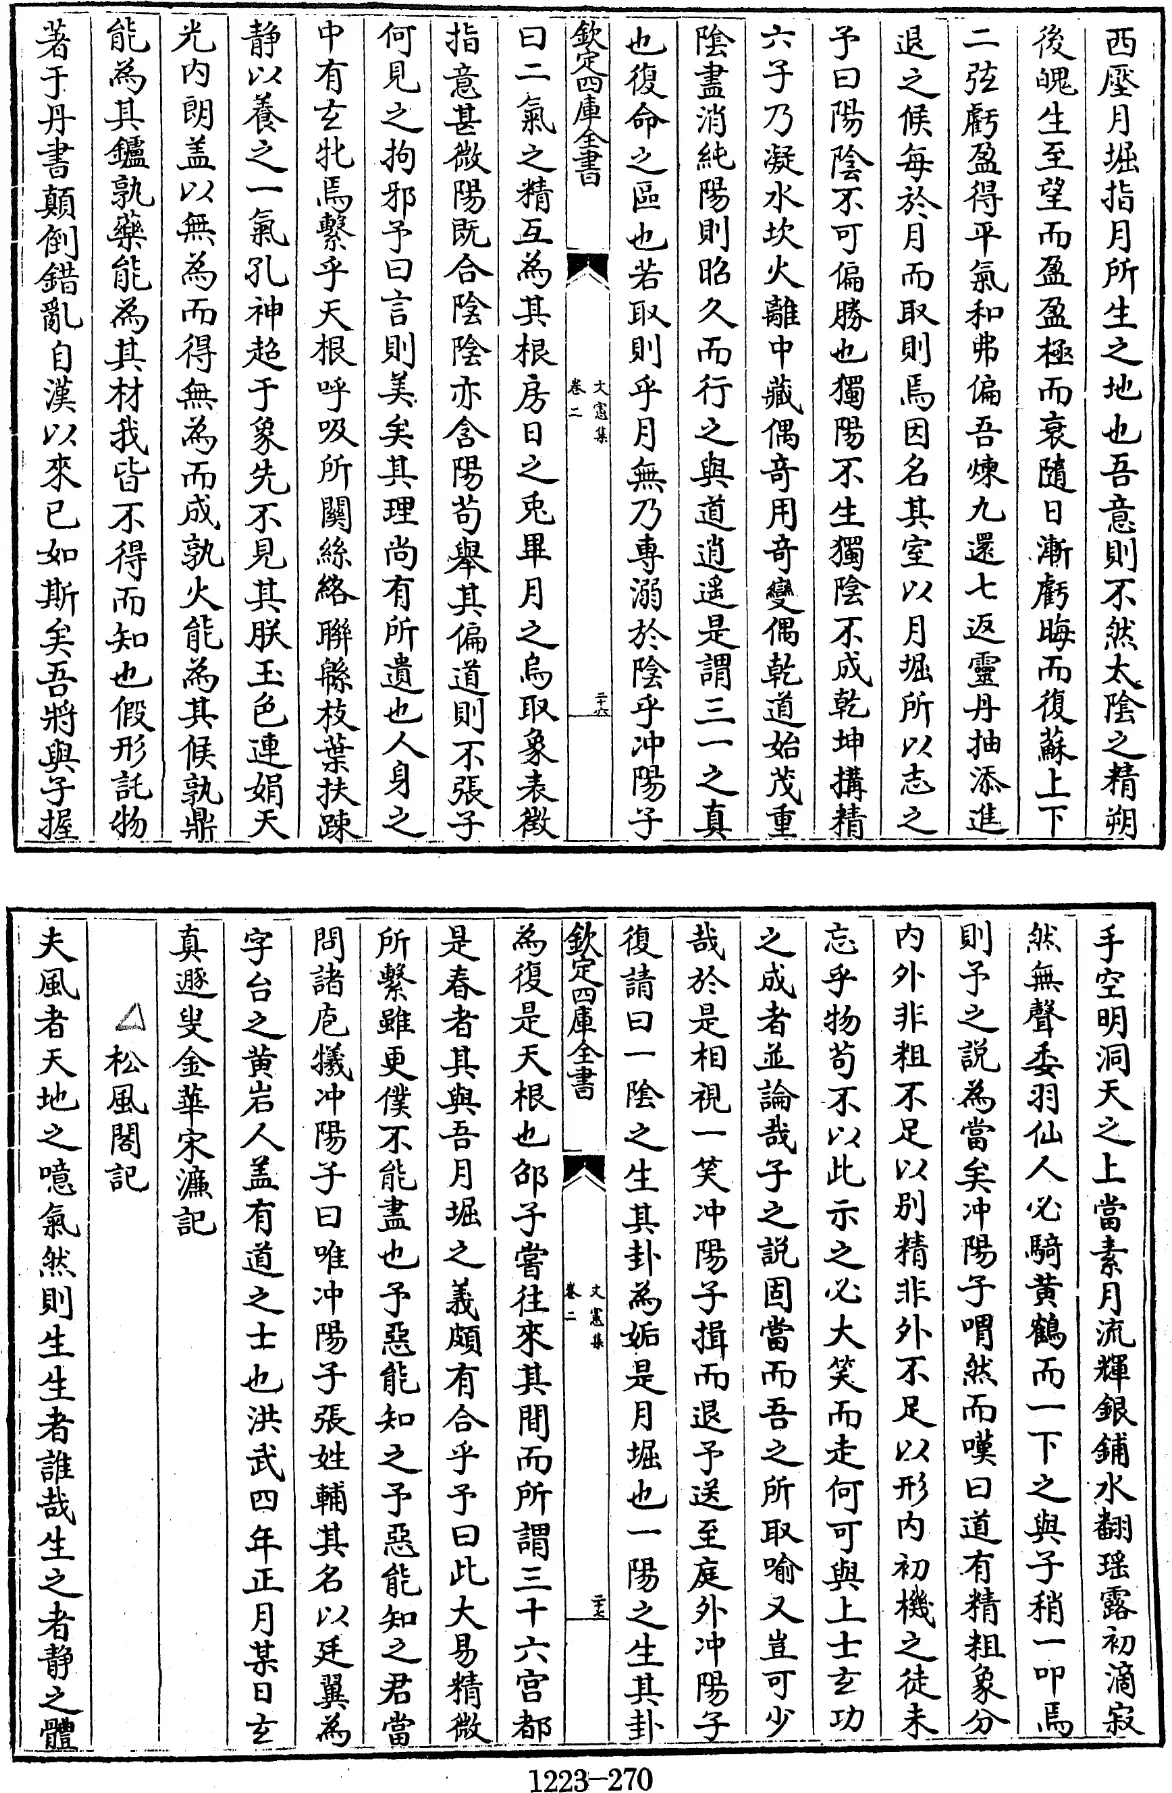 西壓月堀指月所生之地也吾意則不然太陰之精朔
後魄生至望而盈盈極而衰隨日漸虧晦而復蘇上下
二弦虧盈得平氣和弗偏吾煉九還七返靈丹抽添進
退之候每於月而取則焉因名其室以月堀所以志之
予曰陽陰不可偏勝也獨陽不生獨陰不成乾坤搆精
六子乃凝水坎火離中藏偶奇用奇變偶乾道始茂重
陰盡消純陽則昭久而行之與道逍遥是謂三一之真
也復命之區也若取則乎月無乃専溺於陰乎冲陽子
欽定四庫全書
文憲集
卷二
二十六
曰二氣之精互為其根房日之兎畢月之烏取象表徵
指意甚微陽既合陰陰亦含陽茍舉其偏道則不張子
何見之拘邪予曰言則美矣其理尚有所遺也人身之
中有玄牝焉繫乎天根呼吸所關絲絡聯緜枝葉扶踈
静以養之一氣孔神超于象先不見其朕玉色連娟天
光内朗盖以無為而得無為而成孰火能為其候孰鼎
能為其鑪孰藥能為其材我皆不得而知也假形託物
著于丹書顛倒錯亂自漢以來已如斯矣吾將與子握
手空明洞天之上當素月流輝銀鋪水翻瑶露初滴寂
然無聲委羽仙人必騎黄鶴而一下之與子稍一叩焉
則予之説為當矣冲陽子喟然而嘆曰道有精粗象分
内外非粗不足以别精非外不足以形内初機之徒未
忘乎物茍不以此示之必大笑而走何可與上士玄功
之成者並論哉子之説固當而吾之所取喻又豈可少
哉於是相視一笑冲陽子揖而退予送至庭外冲陽子
復請曰一陰之生其卦為姤是月堀也一陽之生其卦
欽定四庫全書
文憲集
卷二
二十七
為復是天根也邵子嘗往來其間而所謂三十六宫都
是春者其與吾月堀之義頗有合乎予曰此大易精微
所繫雖更僕不能盡也予惡能知之予惡能知之君當
問諸庖犧冲陽子曰唯冲陽子張姓輔其名以廷翼為
字台之黄岩人盖有道之士也洪武四年正月某日玄
真遯叟金華宋濂記
△松風閣記
夫風者天地之噫氣然則生生者誰哉生之者静之體
1223-270